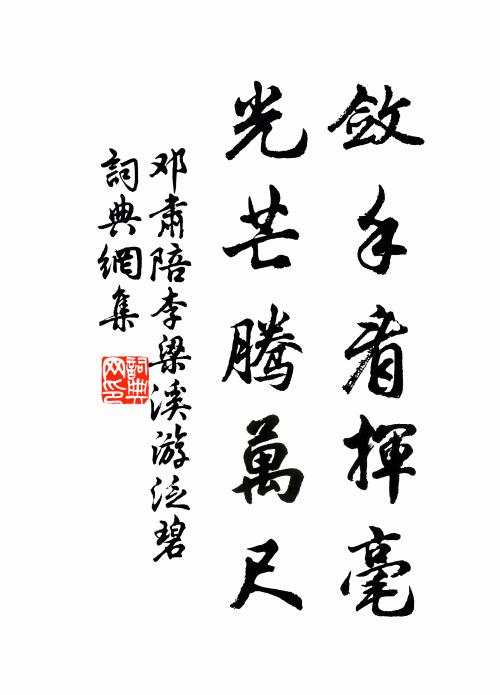 斂手看揮毫
光芒腾萬尺
邓肅陪李梁溪游泛碧
詞典網集
詞典网印